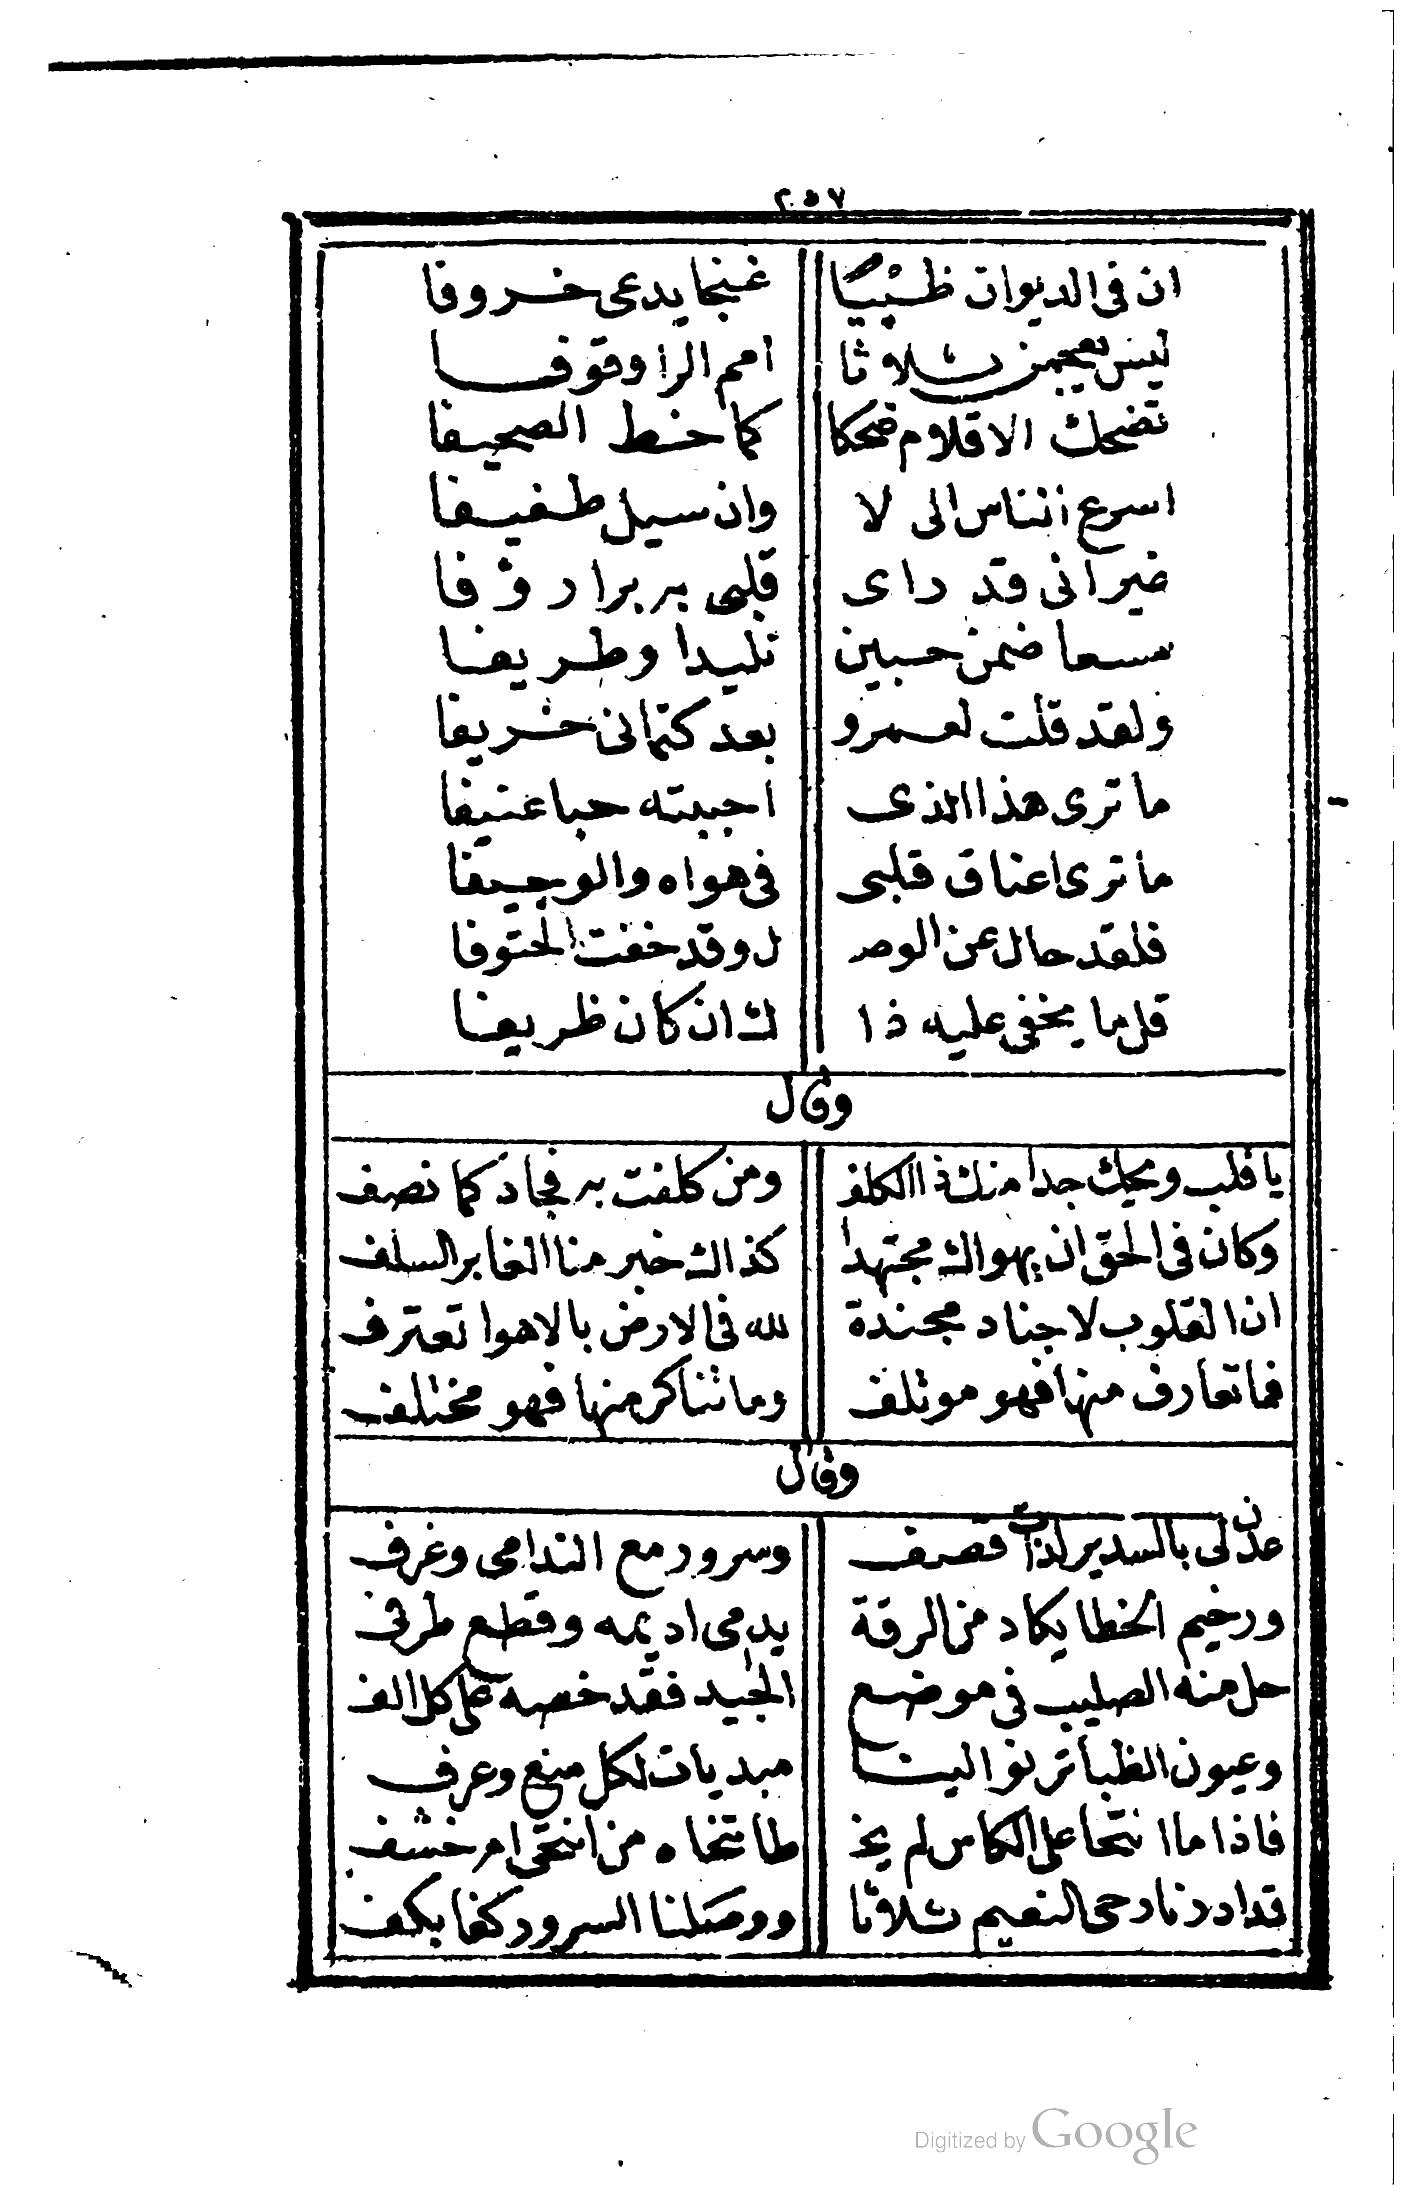 ٢٥٧
ان فى الديوان ظبيا غنجا يدعى خروفا
ليس يعجمن ثلاثا امم الرا وقوفا
تضحك الاقلام ضحكا كما خط الصحيفا
اسرع الناس الى لا وان سيل طفيفا
ضيرانى قد راى قلبى به برا رؤفا
سعا ضمن حبين تليدا وطريفا
ولقد قلت لعمرو بعد كتمانى خريفا
ما ترى هذا الذى احببته حبا عنيفا
ما ترى اعناق قلبى فى هواه والوجيفا
فلقد حال عن الوصـ ـل وقد خفت الحتوفا
قل ما يخفى عليه ذا ك ان كان ظريفا
وقال
يا قلب ويحك جدا منك ذا الكلف ومن كلفت به فجاد كما نصف
وكان فى الحق ان يهواك مجتهدا كذاك خبر منا الغابر السلف
ان القلوب لاجناد مجندة لله فى الارض بالاهوا تعترف
فما تعارف منها فهو موتلف وما تناكر منها فهو مختلف
وقال
عدن لى بالسدير لذات قصف وسرور مع الندامى وغرف
ورخيم الخطا يكاد من الرقة يدمى اديمه وقطع طرفى
حل منه الصليب فى موضع الجيد فقد خصه على كل الف
وعيون الظبا ترنو الينا مبديات لكل منع وعرف
فاذا ما انتحا على الكاس لم يخـ طا نتخاه من انتحى ام خشف
قد ادرنا رحى النعيم ثلاثا ووصلنا السرور كفا بكف
Digitized by Google